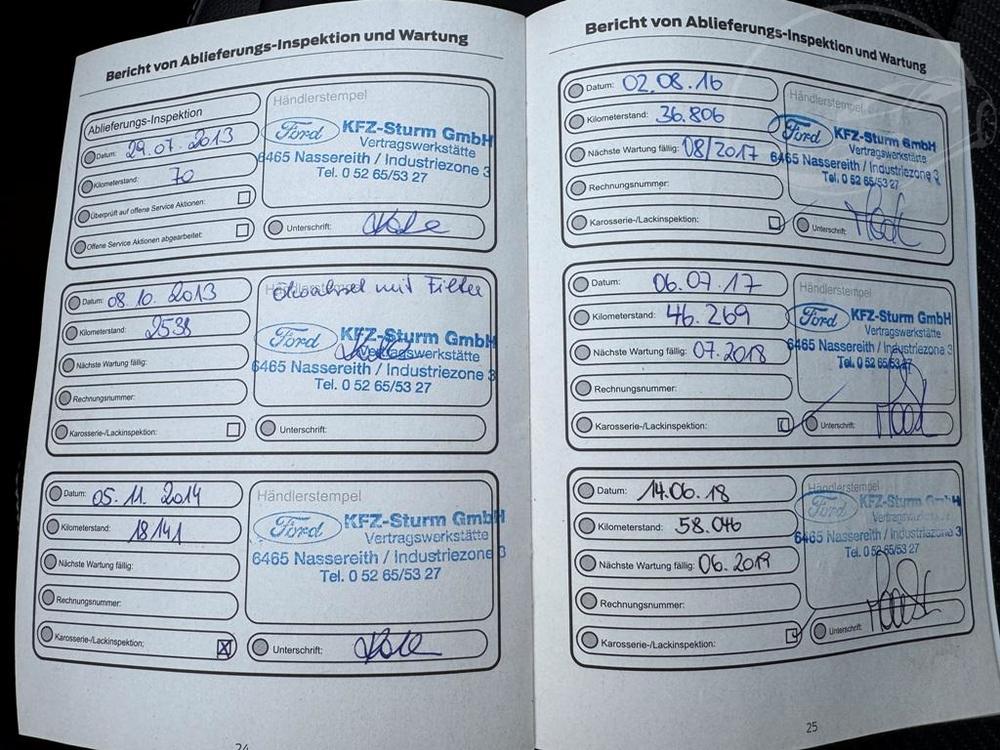 Bericht von Ablieferungs-Inspektion und Wartung
Ablieferungs-Inspektion
Datum: 29.07.2013
Kilometerstand: 70
Überprüft auf offene Service Aktionen:
Offene Service Aktionen abgearbeitet:
Händlerstempel
Ford KFZ-Sturm GmbH
Vertragswerkstätte
6465 Nassereith / Industriezone 3
Tel. 0 52 65/53 27
Unterschrift:
Datum: 08.10.2013
Kilometerstand: 2538
Nächste Wartung fällig:
Rechnungsnummer:
Karosserie-/Lackinspektion:
Händlerstempel
Ölwechsel mit Filter
Ford KFZ-Sturm GmbH
Vertragswerkstätte
6465 Nassereith / Industriezone 3
Tel. 0 52 65/53 27
Unterschrift:
Datum: 05.11.2014
Kilometerstand: 18141
Nächste Wartung fällig:
Rechnungsnummer:
Karosserie-/Lackinspektion:
Händlerstempel
Ford KFZ-Sturm GmbH
Vertragswerkstätte
6465 Nassereith / Industriezone 3
Tel. 0 52 65/53 27
Unterschrift:
24
Bericht von Ablieferungs-Inspektion und Wartung
Datum: 02.08.16
Kilometerstand: 36.806
Nächste Wartung fällig: 08/2017
Rechnungsnummer:
Karosserie-/Lackinspektion:
Händlerstempel
Ford KFZ-Sturm GmbH
Vertragswerkstätte
6465 Nassereith / Industriezone 3
Tel. 0 52 65/53 27
Unterschrift:
Datum: 06.07.17
Kilometerstand: 46.269
Nächste Wartung fällig: 07.2018
Rechnungsnummer:
Karosserie-/Lackinspektion:
Händlerstempel
Ford KFZ-Sturm GmbH
Vertragswerkstätte
6465 Nassereith / Industriezone 3
Tel. 0 52 65/53 27
Unterschrift:
Datum: 14.06.18
Kilometerstand: 58.046
Nächste Wartung fällig: 06.2019
Rechnungsnummer:
Karosserie-/Lackinspektion:
Händlerstempel
Ford KFZ-Sturm GmbH
Vertragswerkstätte
6465 Nassereith / Industriezone 3
Tel. 0 52 65/53 27
Unterschrift:
25